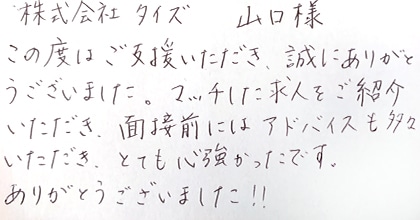 株式会社 タイズ 山口様
この度はご支援いただき、誠にありがと
うございました。マッチした求人をご紹介
いただき、面接前にはアドバイスも多々
いただき、とても心強かったです。
ありがとうございました!!